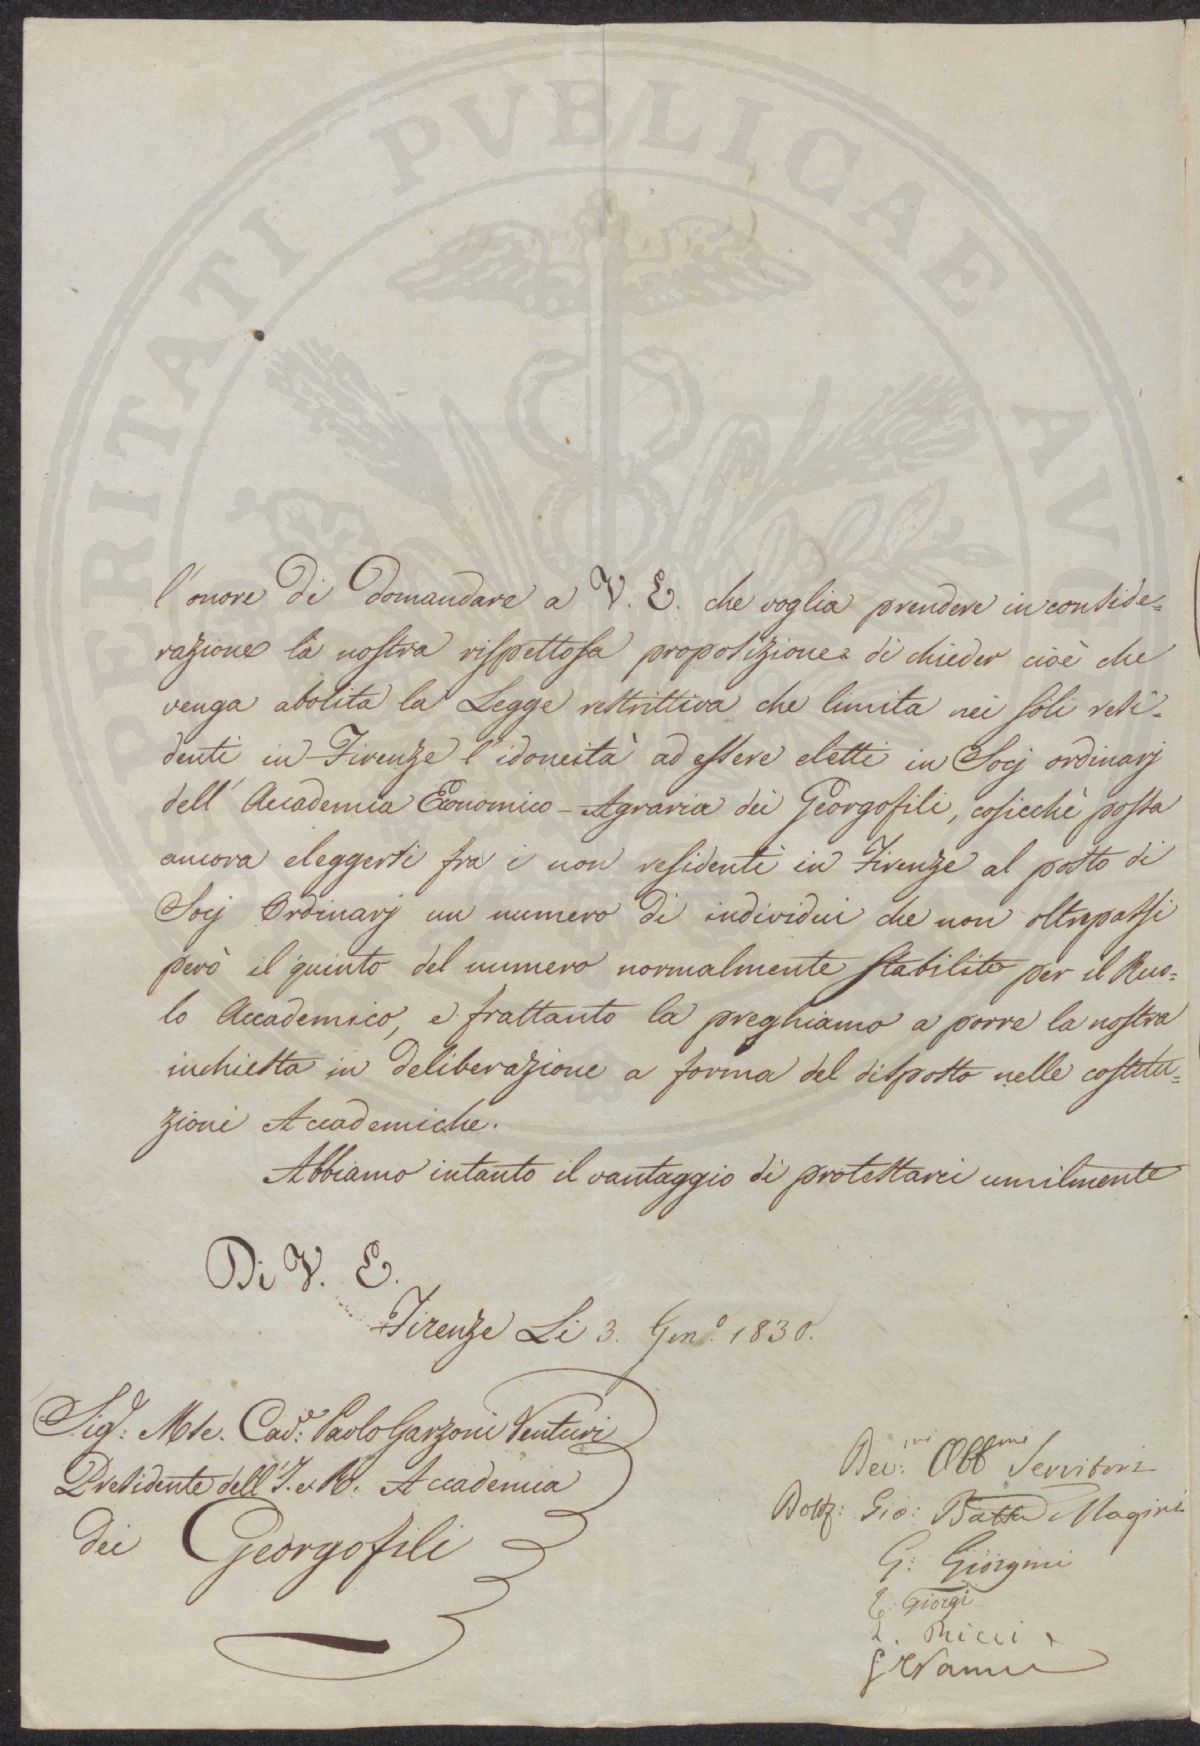 l'onore di domandare a V. E. che voglia prendere in conside=
razione la nostra rispettosa proposizione di chieder cioè che
venga abolita la Legge restrittiva che limita nei soli resi=
denti in Firenze l'idoneità ad essere eletti in Socj ordinarj
dell'Accademia Economico-Agraria dei Georgofili, cosicchè possa
ancora eleggersi fra i non residenti in Firenze al posto di
Socj Ordinarj un numero di individui che non oltrepassi
però il quinto del numero normalmente stabilito per il Ruo=
lo Accademico, e frattanto la preghiamo a porre la nostra
inchiesta in deliberazione a forma del disposto nelle costitu=
zioni Accademiche.
Abbiamo intanto il vantaggio di protestarci umilmente
Di V. E.
Firenze Li 3. Gen.º 1830.
Sigr: Mse. Cavr: Paolo Garzoni Venturi
Presidente dell'I. e R. Accademia
dei Georgofili
Dev:mi Obbmi Servitori
Dott: Gio: Batta Magini
G: Giorgini
E. Giorgi
L. Ricci
PROSPERITATI PUBLICAE AU